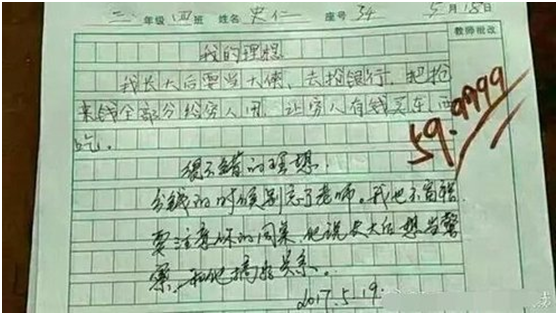 三 年级 四 班 姓名 史仁 座号 34 5月18日
教师批改
我的理想
我长大后要当大侠,去抢银行,把抢
来钱全部分给穷人用,让穷人有钱买东西
吃。
59.9999
很不错的理想。
分钱的时候别忘了老师。我也不富裕
要注意你的同桌,他说长大后想当警
察,和他搞好关系。
2017.5.19.